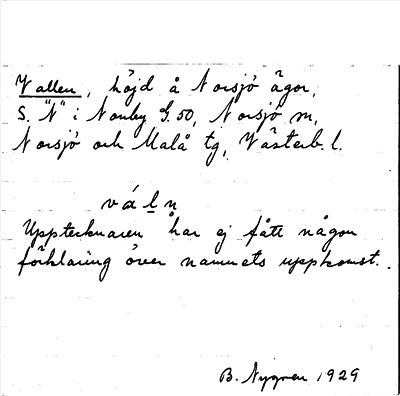 Vallen, höjd å Norsjö ägor,
S. "N" i Norrby G.50, Norsjö sn,
Norsjö och Malå tg, Västerb. l.
váln
Upptecknaren har ej fått någon
förklaring över namnets uppkomst.
B. Nygren 1929